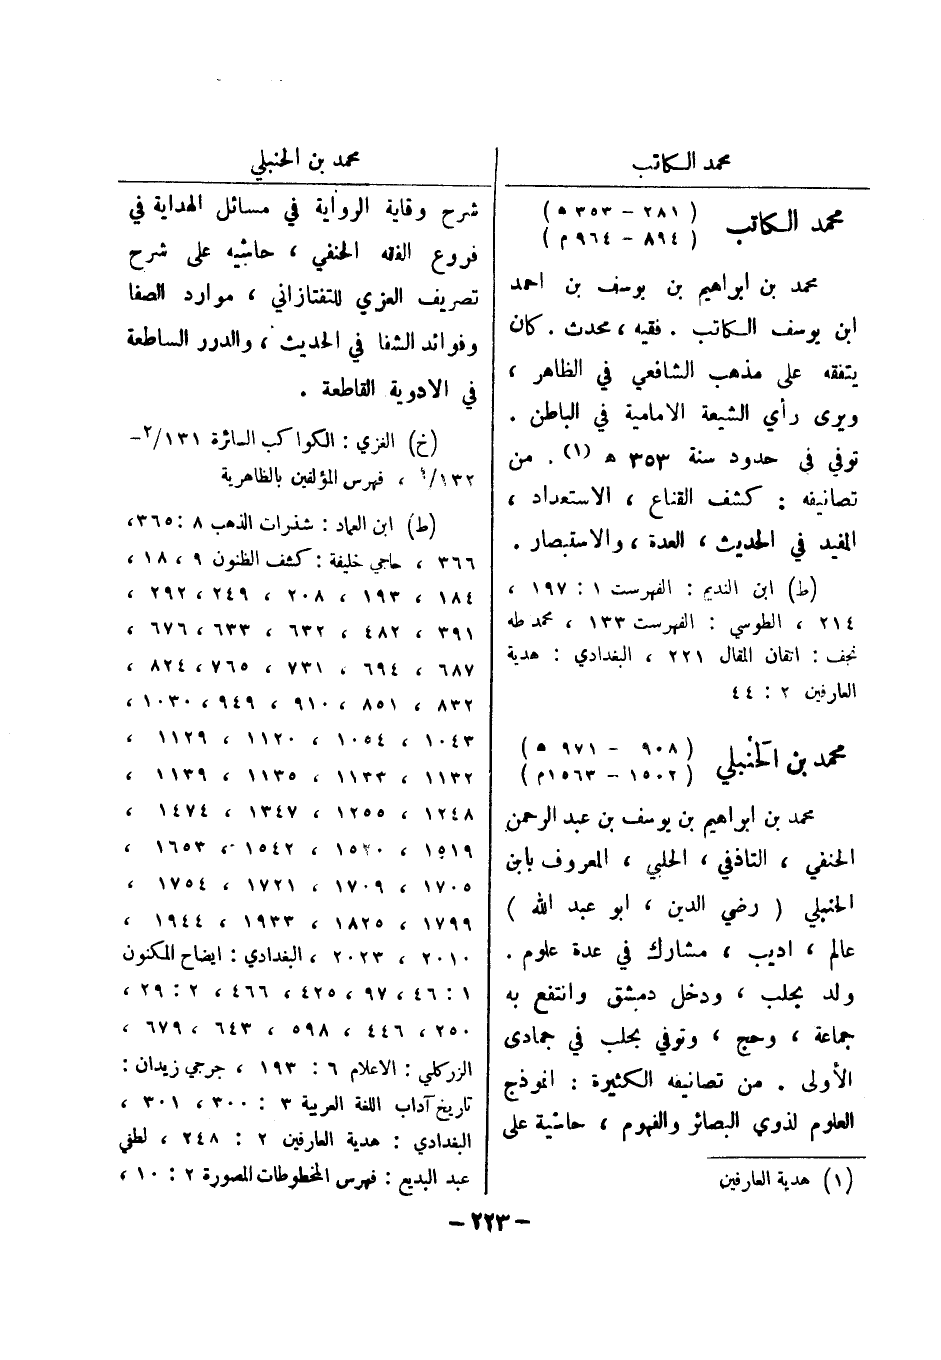 محمد الكاتب
محمد الكاتب
( ٢٨١ – ٣٥٣ ه )
( ٨٩٤ – ٩٦٤ م )
محمد بن ابراهيم بن يوسف بن احمد
ابن يوسف الكاتب . فقيه ، محدث . كان
يتفقه على مذهب الشافعي في الظاهر ،
ويرى رأي الشيعة الامامية في الباطن .
توفي في حدود سنة ٣٥٣ ه (١) . من
تصانيفه : كشف القناع ، الاستعداد ،
المفيد في الحديث ، العدة ، والاستبصار .
(ط) ابن النديم : الفهرست ١ : ١٩٧ ،
٢١٤ ، الطوسي : الفهرست ١٣٣ ، محمد طه
نجف : اتقان المقال ٢٢١ ، البغدادي : هدية
العارفين ٢ : ٤٤
محمد بن الحنبلي
( ٩٠٨ – ٩٧١ ه )
( ١٥٠٢ – ١٥٦٣م )
محمد بن ابراهيم بن يوسف بن عبد الرحمن
الحنفي ، التاذفي ، الحلبي ، المعروف بابن
الحنبلي ( رضي الدين ، ابو عبد الله )
عالم ، اديب ، مشارك في عدة علوم .
ولد بحلب ، ودخل دمشق وانتفع به
جماعة ، وحج ، وتوفي بحلب في جمادى
الأولى . من تصانيفه الكثيرة : انموذج
العلوم لذوي البصائر والفهوم ، حاشية على
(١) هدية العارفين
محمد بن الحنبلي
شرح وقاية الرواية في مسائل الهداية في
فروع الفقه الحنفي ، حاشيه على شرح
تصريف العزي للتفتازاني ، موارد الصفا
وفوائد الشفا في الحديث ، والدرر الساطعة
في الادوية القاطعة .
(خ) الغزي : الكواكب السائرة ١٣١/٢–
١٣٢/ ، فهرس المؤلفين بالظاهرية
(ط) ابن العماد : شذرات الذهب ٨ : ٣٦٥،
٣٦٦ ، حاجي خليفة : كشف الظنون ٩ ، ١٨ ،
١٨٤ ، ١٩٣ ، ٢٠٨ ، ٢٤٩ ، ٢٩٢ ،
٣٩١ ، ٤٨٢ ، ٦٣٢ ، ٦٣٣ ، ٦٧٦ ،
٦٨٧ ، ٦٩٤ ، ٧٣١ ، ٧٦٥ ، ٨٢٤ ،
٨٣٢ ، ٨٥١ ، ٩١٠ ، ٩٤٩ ، ١٠٣٠ ،
١٠٤٣ ، ١٠٥٤ ، ١١٢٠ ، ١١٢٩ ،
١١٣٢ ، ١١٣٣ ، ١١٣٥ ، ١١٣٩ ،
١٢٤٨ ، ١٢٥٥ ، ١٣٤٧ ، ١٤٧٤ ،
١٥١٩ ، ١٥٢٠ ، ١٥٤٢ ، ١٦٥٣ ،
١٧٠٥ ، ١٧٠٩ ، ١٧٢١ ، ١٧٥٤ ،
١٧٩٩ ، ١٨٢٥ ، ١٩٣٣ ، ١٩٤٤ ،
٢٠١٠ ، ٢٠٢٣ ، البغدادي : ايضاح المكنون
١ : ٤٦ ، ٩٧ ، ٤٢٥ ، ٤٦٦ ، ٢ : ٢٩ ،
٢٥٠ ، ٤٤٦ ، ٥٩٨ ، ٦٤٣ ، ٦٧٩ ،
الزركلي : الاعلام ٦ : ١٩٣ ، جرجي زيدان :
تاريخ آداب اللغة العربية ٣ : ٣٠٠ ، ٣٠١ ،
البغدادي : هدية العارفين ٢ : ٢٤٨ ، لطفي
عبد البديع : فهرس المخطوطات المصورة ٢ : ١٠ ،
– ٢٢٣ –